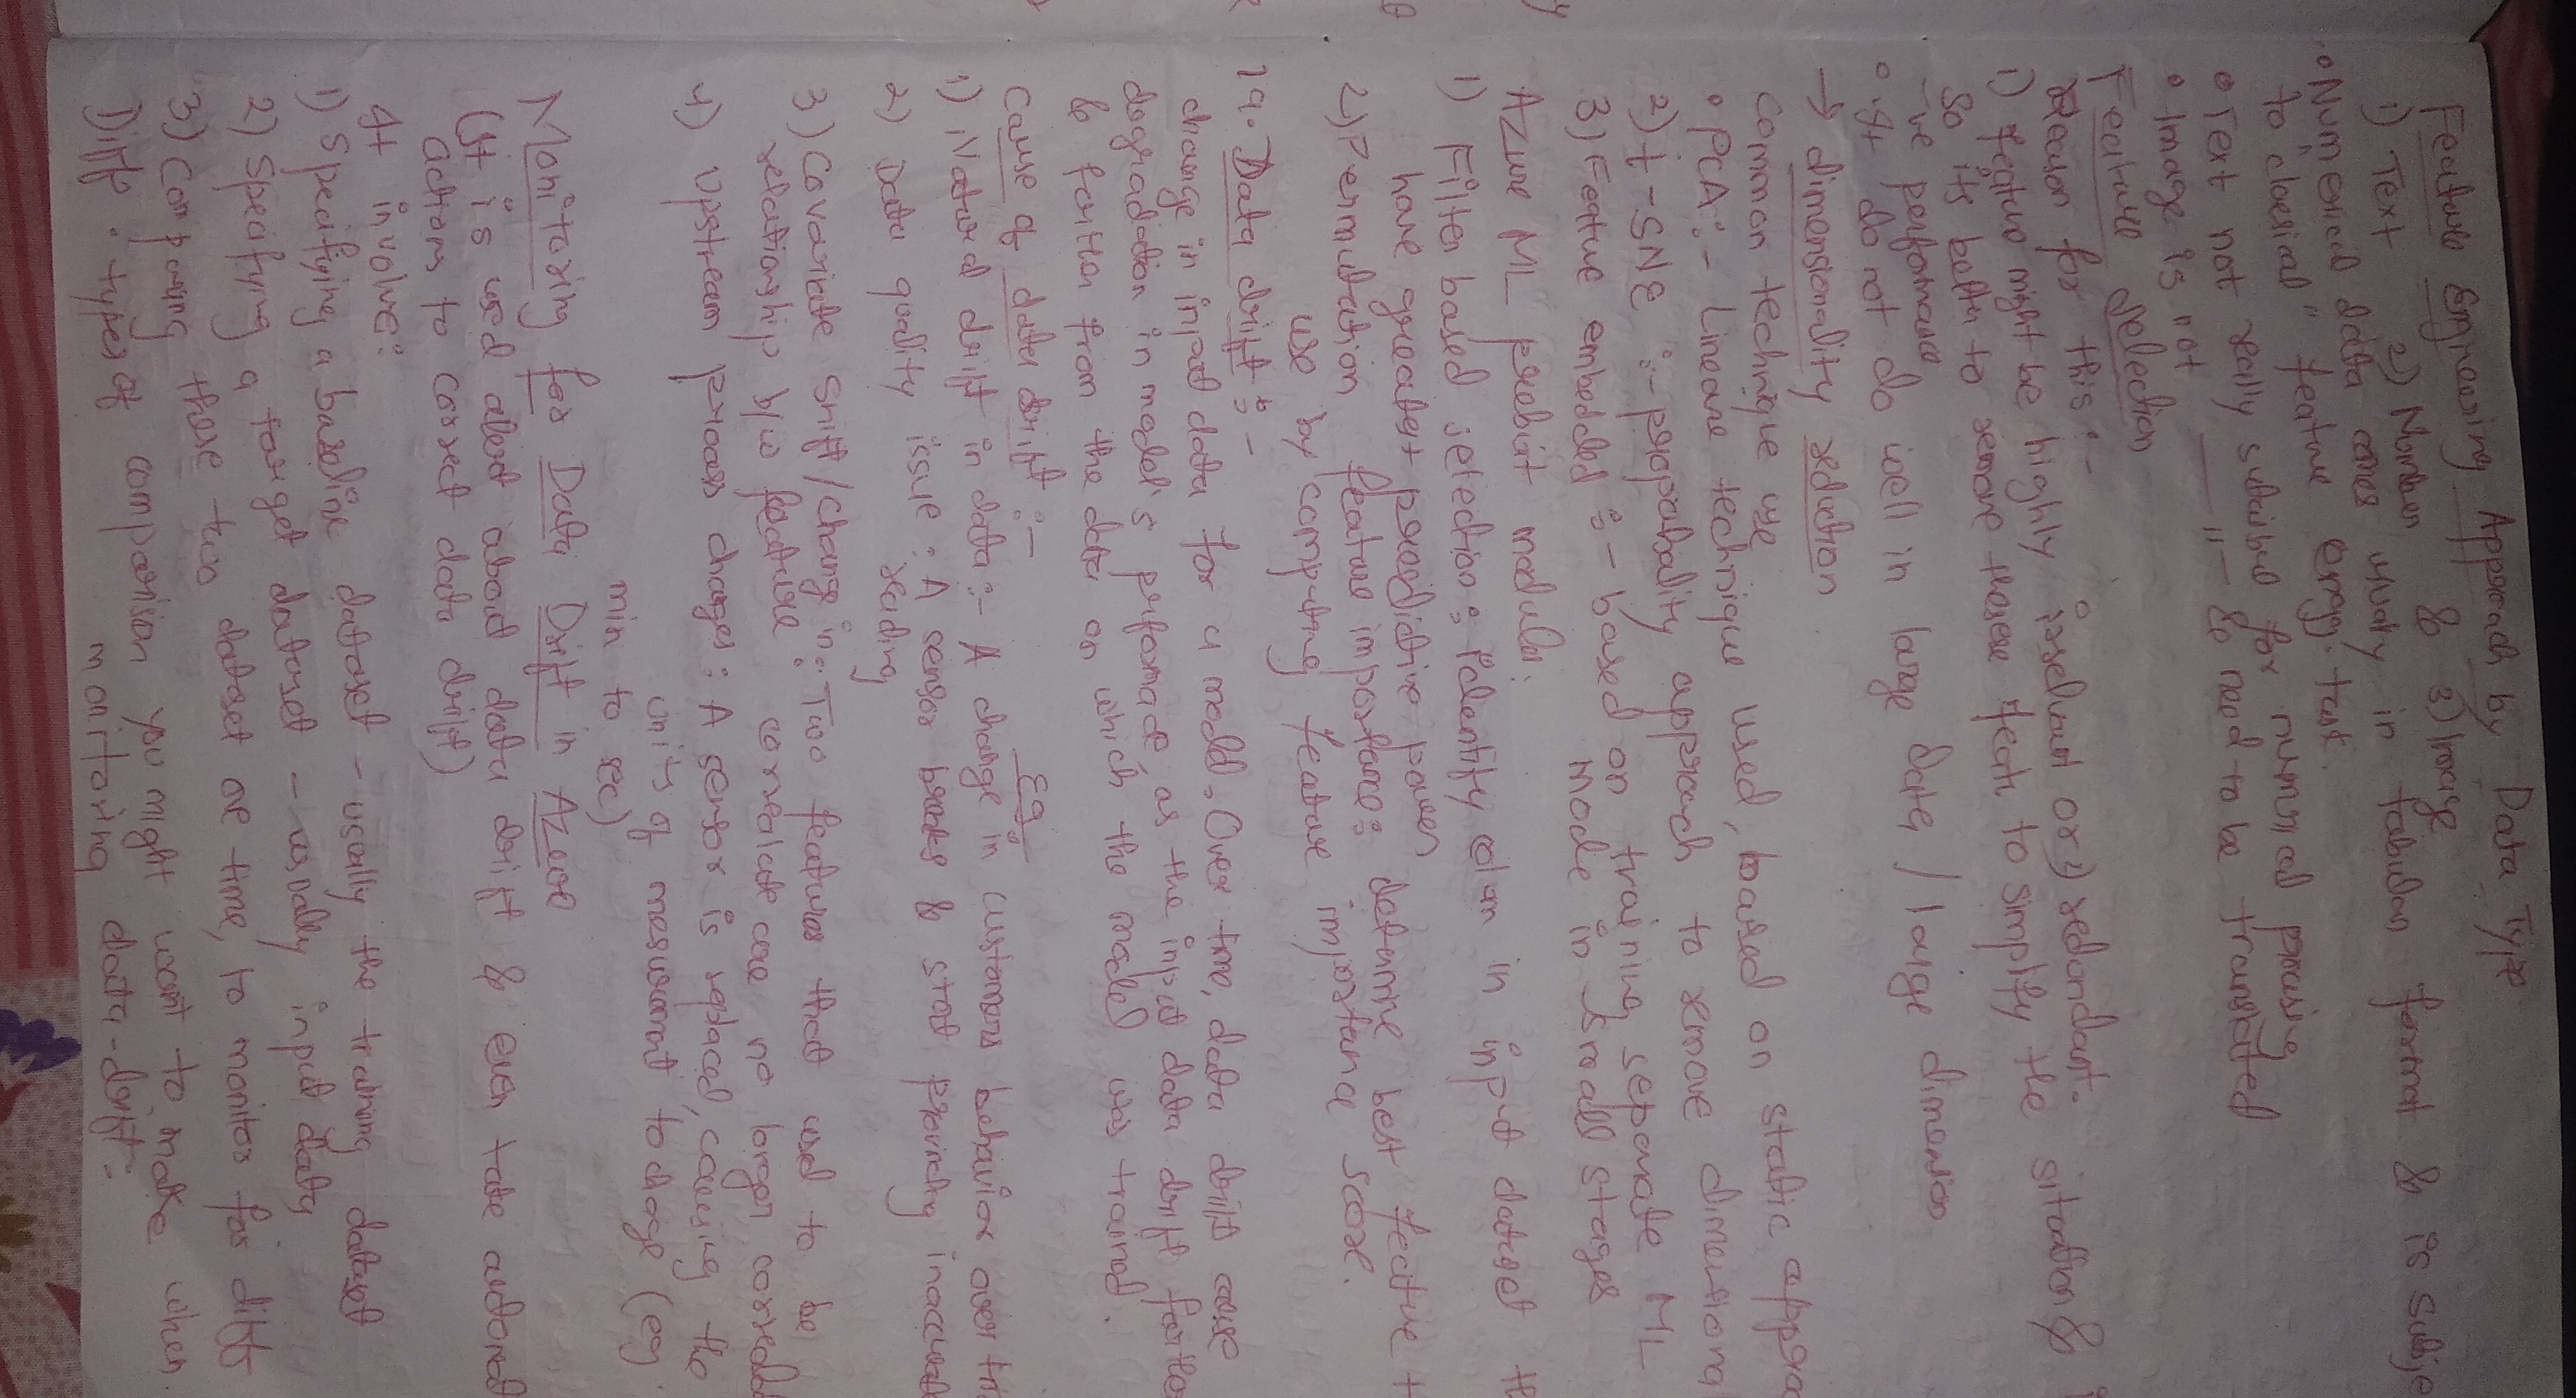 Feature Engneering Approach by Data Type
1) Text 2) Number & 3) Image
• Numerical data comes usually in tabular format & is subje
to classical" feature engg. task.
• Text not really suitable for numerical processing
• Image is not ___ " — & need to be translated
Feature Selection
Reason for this :-
1) feature might be highly irrelevant or 2) redundant.
So its better to remove these featu to simplify the situation &
-ve performance
• It do not do well in large Data / large dimension
→ dimensionality reduction
Common technique use
• PCA :- Linear technique used, based on static approa
2) t-SNE :- propobability approach to remove dimensional
3) Feature embedded :- based on training seperate ML
mode in small stages
Azure ML prebuit module:
1) Filter based selection : Identify clm in input datset th
have greatest preedictive power
2) Permutation feature importance: determine best feature t
use by computing feature importance score.
19. Data drift :-
change in input data for a model. Over time, data drift cause
degradation in model's preformace, as the input data drift farther
& farther from the data on which the model was trained.
Cause of data drift :- Eg:
1) Natural drift in data :- A change in customers behavior over tim
2) Data quality issue : A sensor breaks & start providing inaccurat
reading
3) Covariate shift / change in : Two features that used to be
relationship b/w feature correalate are no longer correlat
4) Upstream process changes : A sensor is replaced, causing the
units of mesurement to chage (eg
min to sec)
Monitoring for Data Drift in Azure
(It is used alert about data drift & even take automat
actions to correct data drift)
It involve:
1) Specifying a baseline dataset - usually the training dataset
2) Specifying a target dataset - usually input data
3) Comparing these two dataset ove time, to monitor for diff
Diff. types of comparision you might want to make when
monitoring data-drift.